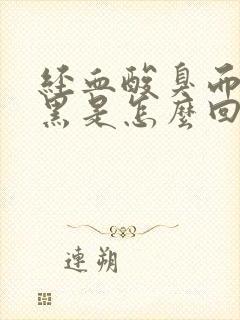 經血酸臭而
黑是怎麼回
連朔